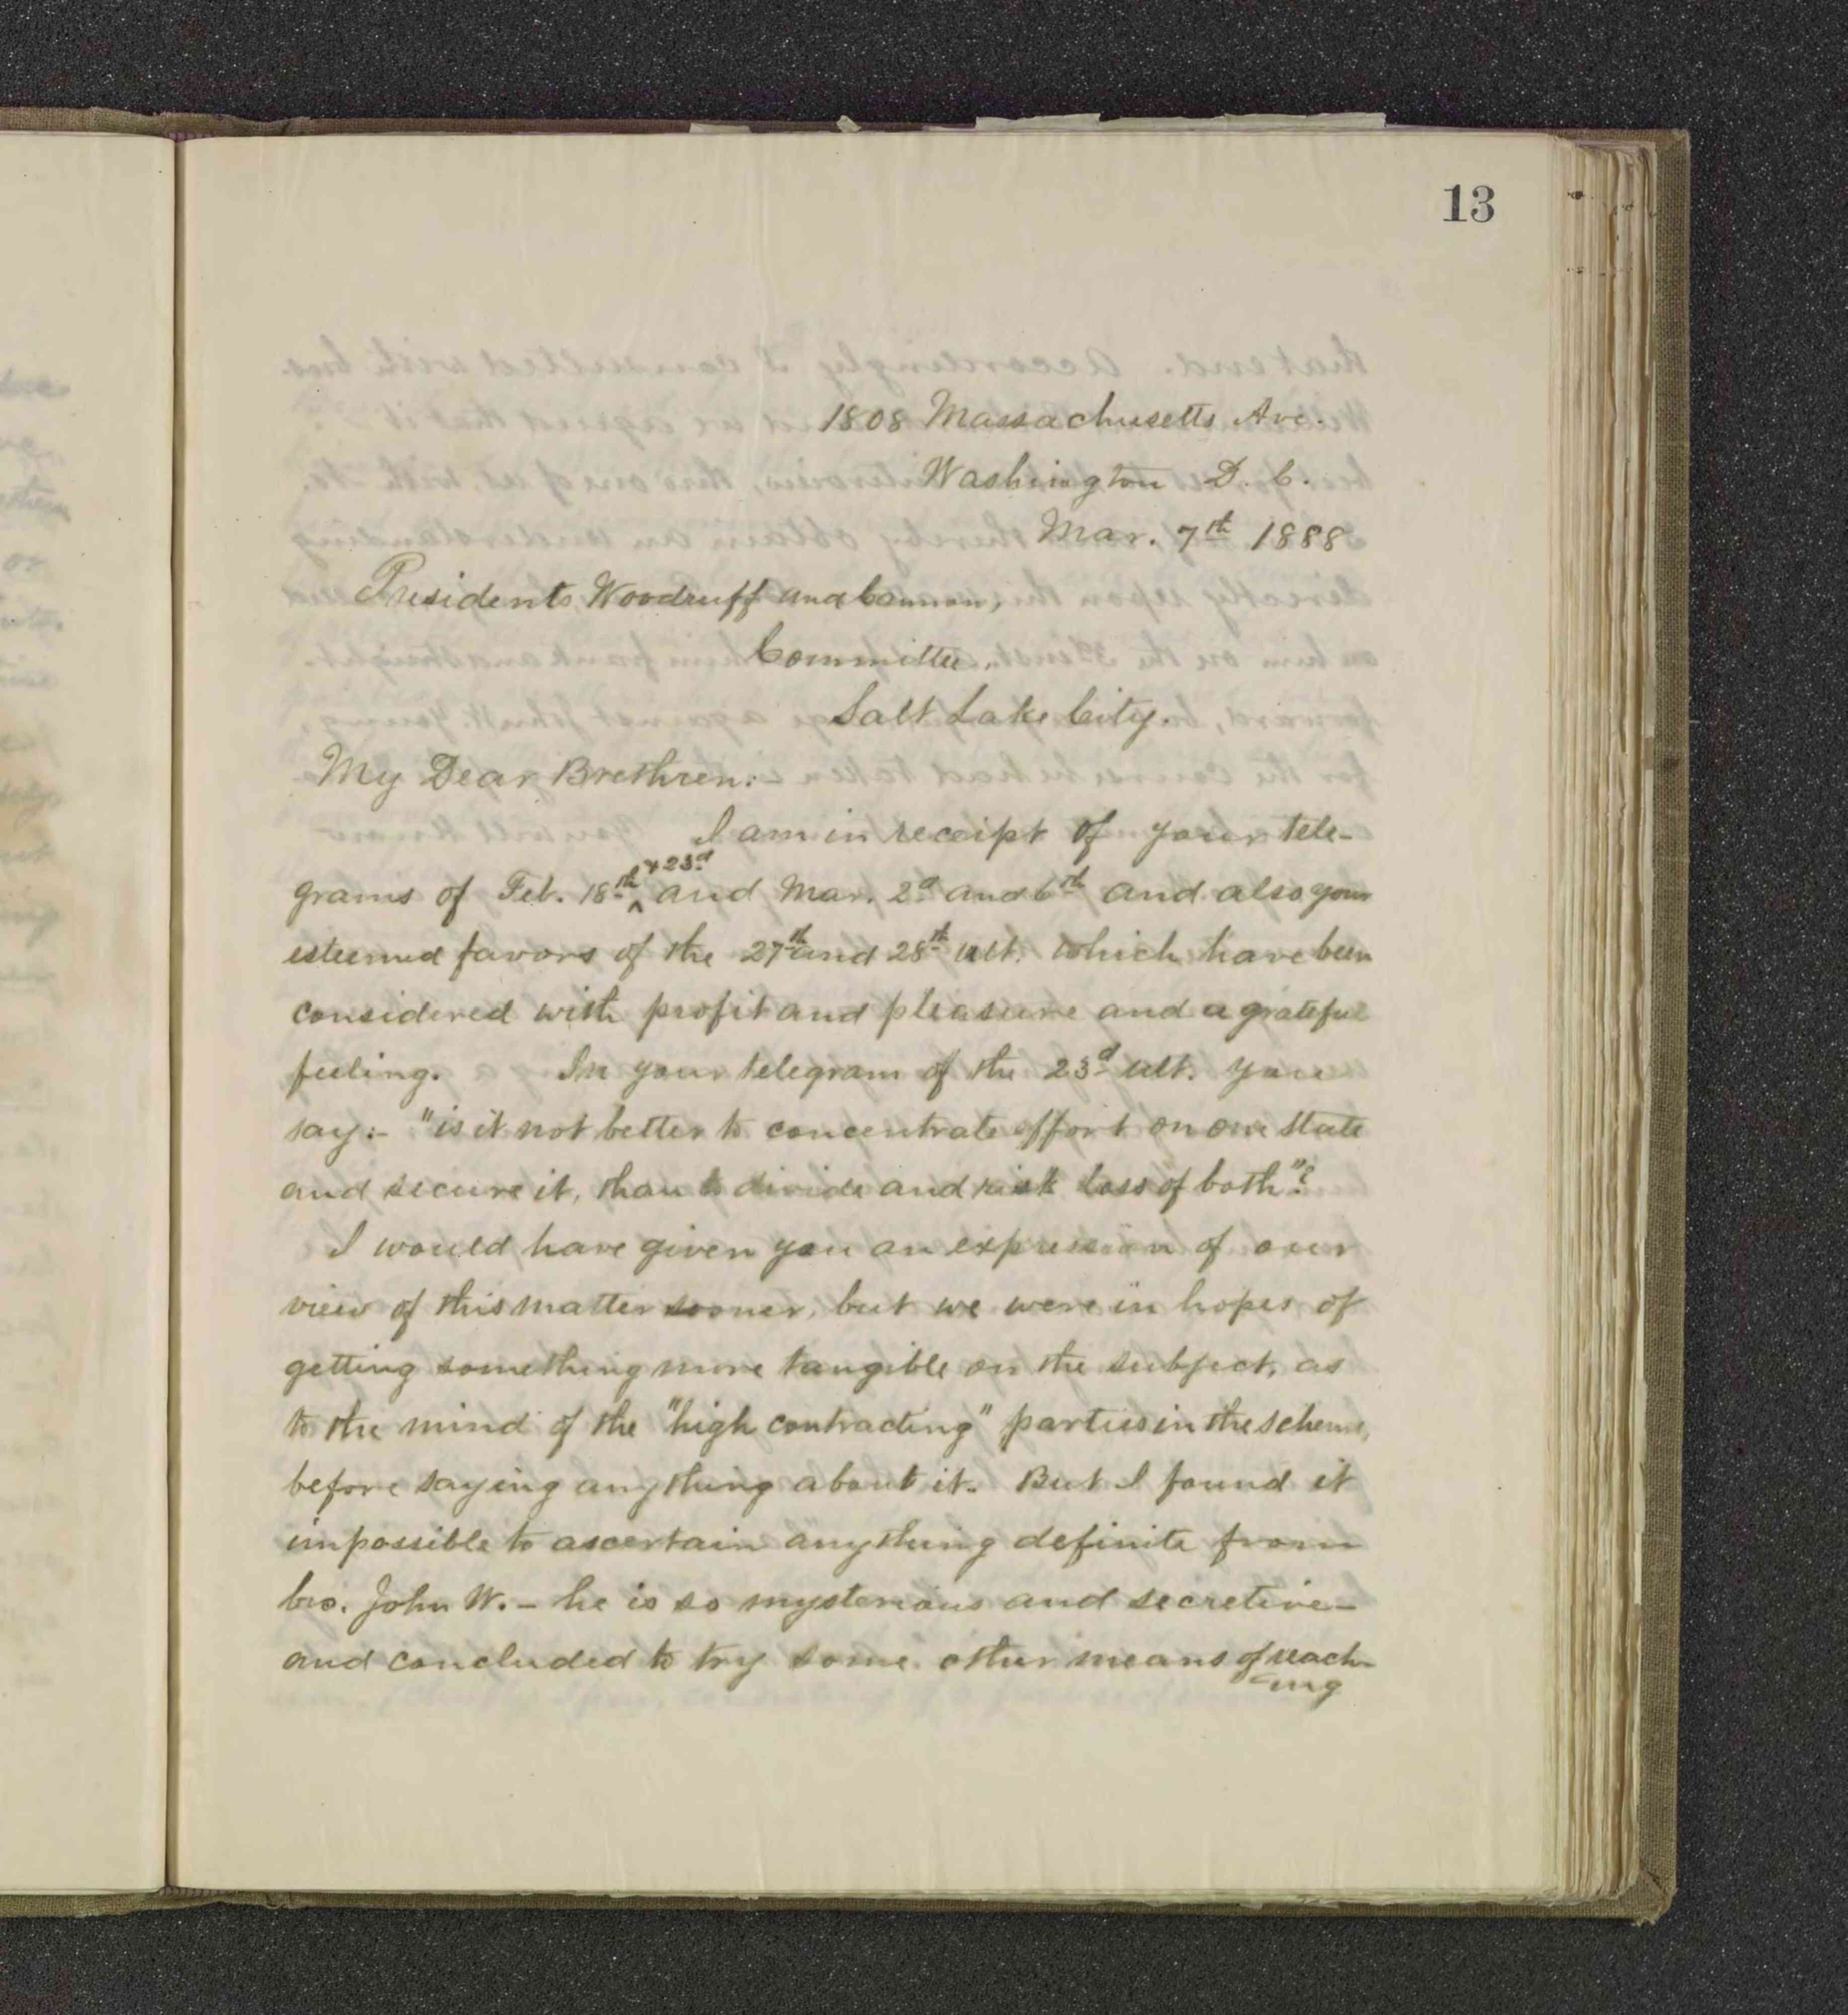 13
1808 Massachusetts Ave.
Washington D. C.
Mar. 7th 1888
Presidents Woodruff and Cannon,
Committee,
Salt Lake City.
My Dear Brethren:-
I am in receipt of your tele-
grams of Feb. 18th ^ + 23d and Mar. 2d and 6th and also your
esteemed favors of the 27th and 28th ult. which have been
considered with profit and pleasure and a grateful
feeling. In your telegram of the 23d ult. you
say:- "is it not better to concentrate effort on one State
and secure it, than to divide and risk loss of both"?
I would have given you an expression of our
view of this matter sooner, but we were in hopes of
getting something more tangible on the subject, as
to the mind of the "high contracting" parties in the scheme,
before saying anything about it. But I found it
impossible to ascertain anything definite from
bro. John W. – he is so mysterious and secretive –
and concluded to try some other means of reach-
ing